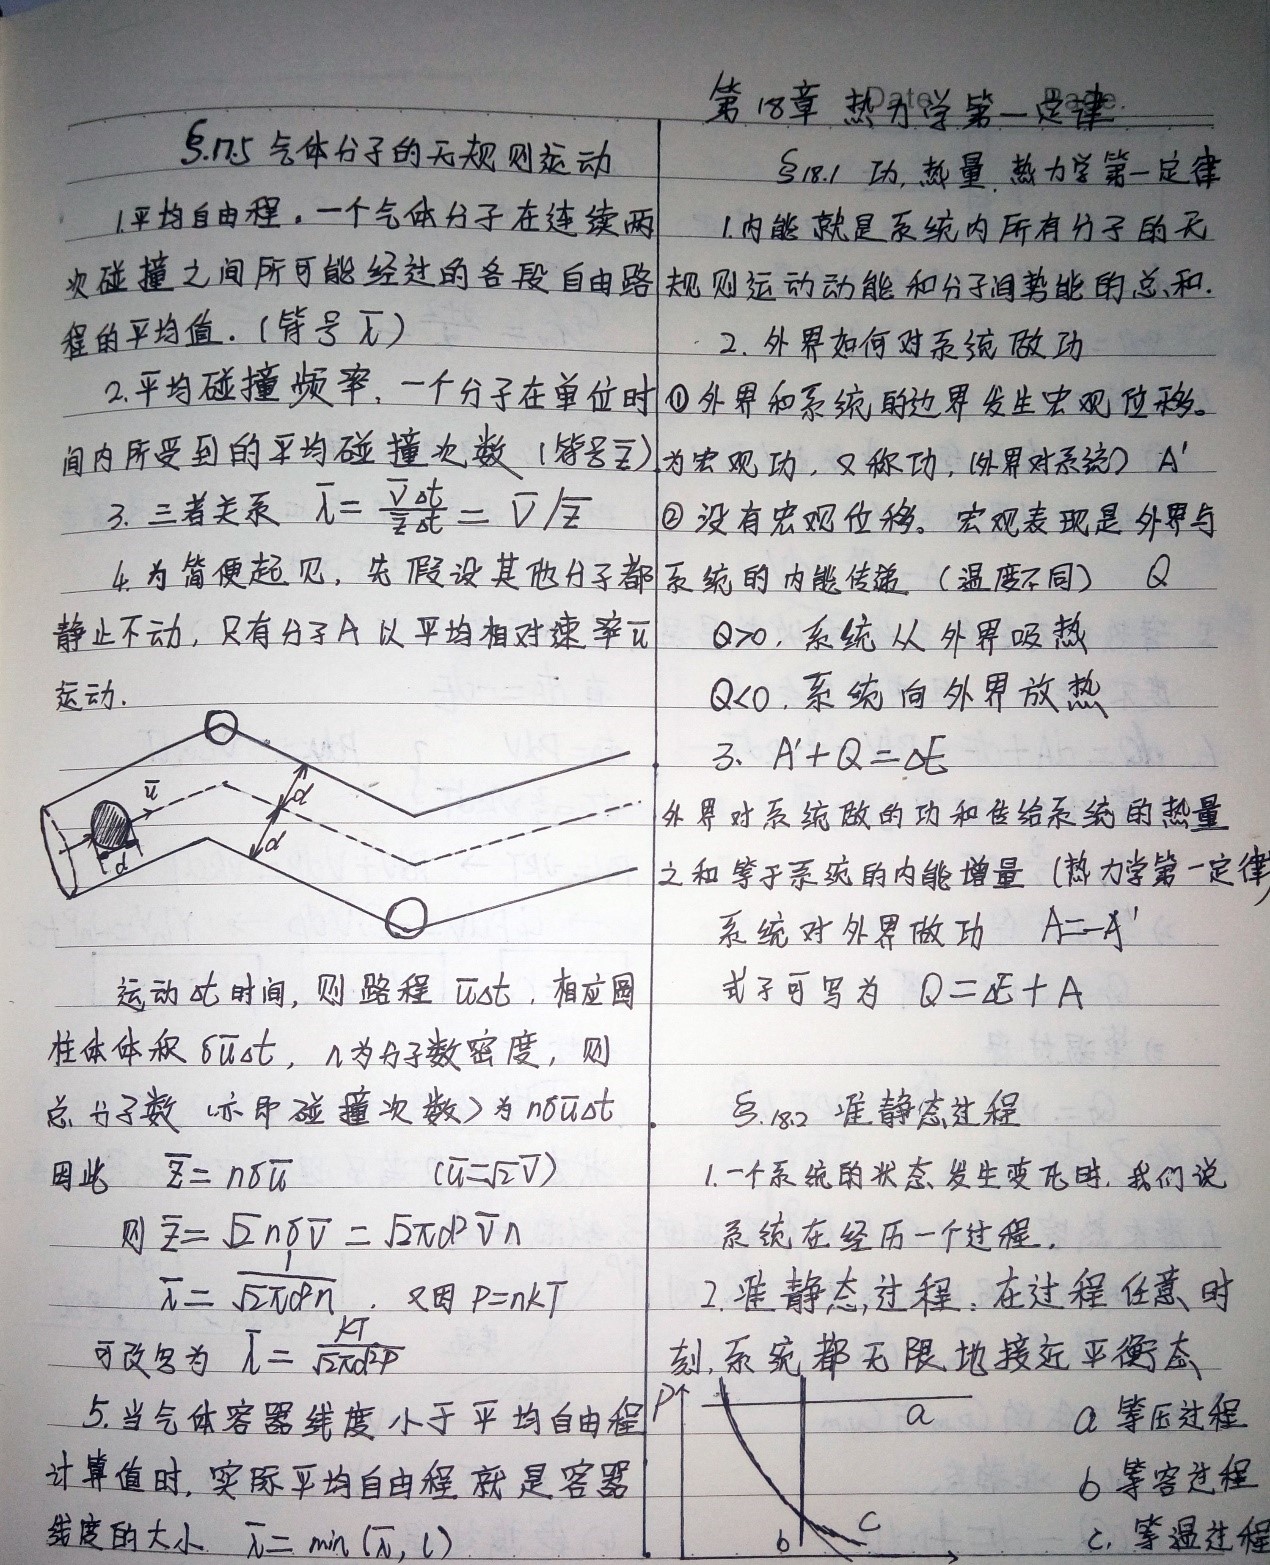 §.17.5 气体分子的无规则运动
1.平均自由程。一个气体分子在连续两
次碰撞之间所可能经过的各段自由路
程的平均值.(符号 λ̄)
2.平均碰撞频率.一个分子在单位时
间内所受到的平均碰撞次数(符号z̄)
3.三者关系 λ̄=v̄Δt/z̄Δt=v̄/z̄
4.为简便起见,先假设其他分子都
静止不动,只有分子A以平均相对速率ū
运动.
ū
d
d
d
运动Δt时间,则路程ūΔt.相应圆
柱体体积δūΔt,n为分子数密度,则
总分子数(亦即碰撞次数)为nδūΔt
因此 z̄=nδū (ū=√2v̄)
则 z̄=√2nδv̄=√2πd²v̄n
λ̄=1/√2πd²n.又因P=nkT
可改写为 λ̄=kT/√2πd²P
5.当气体容器线度小于平均自由程
计算值时,实际平均自由程就是容器
线度的大小 λ̄=min(λ̄,l)
Date.
Page.
第18章 热力学第一定律
§18.1 功,热量.热力学第一定律
1.内能就是系统内所有分子的无
规则运动动能和分子间势能的总和.
2.外界如何对系统做功
①外界和系统的边界发生宏观位移。
为宏观功,又称功,(外界对系统) A'
②没有宏观位移。宏观表现是外界与
系统的内能传递(温度不同) Q
Q>0.系统从外界吸热
Q<0.系统向外界放热
3. A'+Q=ΔE
外界对系统做的功和传给系统的热量
之和等于系统的内能增量(热力学第一定律)
系统对外界做功 A=-A'
式子可写为 Q=ΔE+A
§.18.2 准静态过程
1.一个系统的状态发生变化时.我们说
系统在经历一个过程.
2.准静态过程:在过程任意时
刻,系统都无限地接近平衡态
P
a
b
c
a 等压过程
b 等容过程
c.等温过程